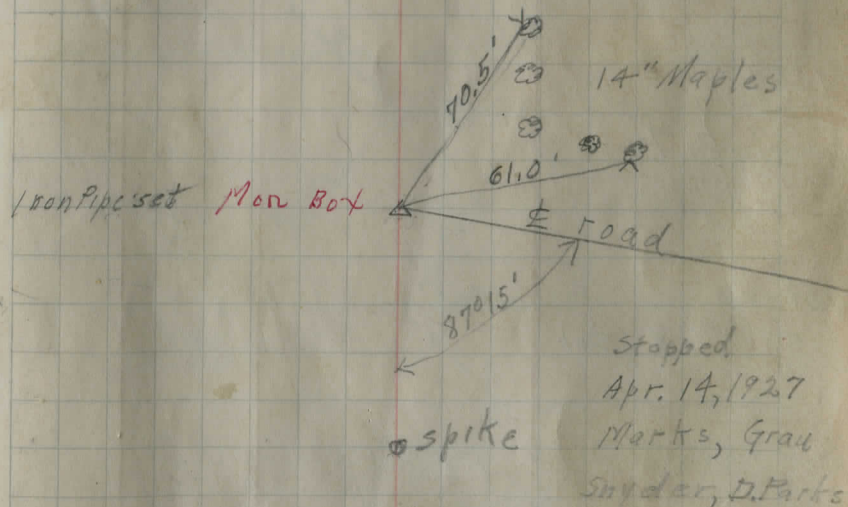 70.5'
14" Maples
61.0'
Iron Pipe set Mon Box
℄ road
87°15'
Stopped
Apr. 14, 1927
spike
Marks, Grau
Snyder, D. Parks